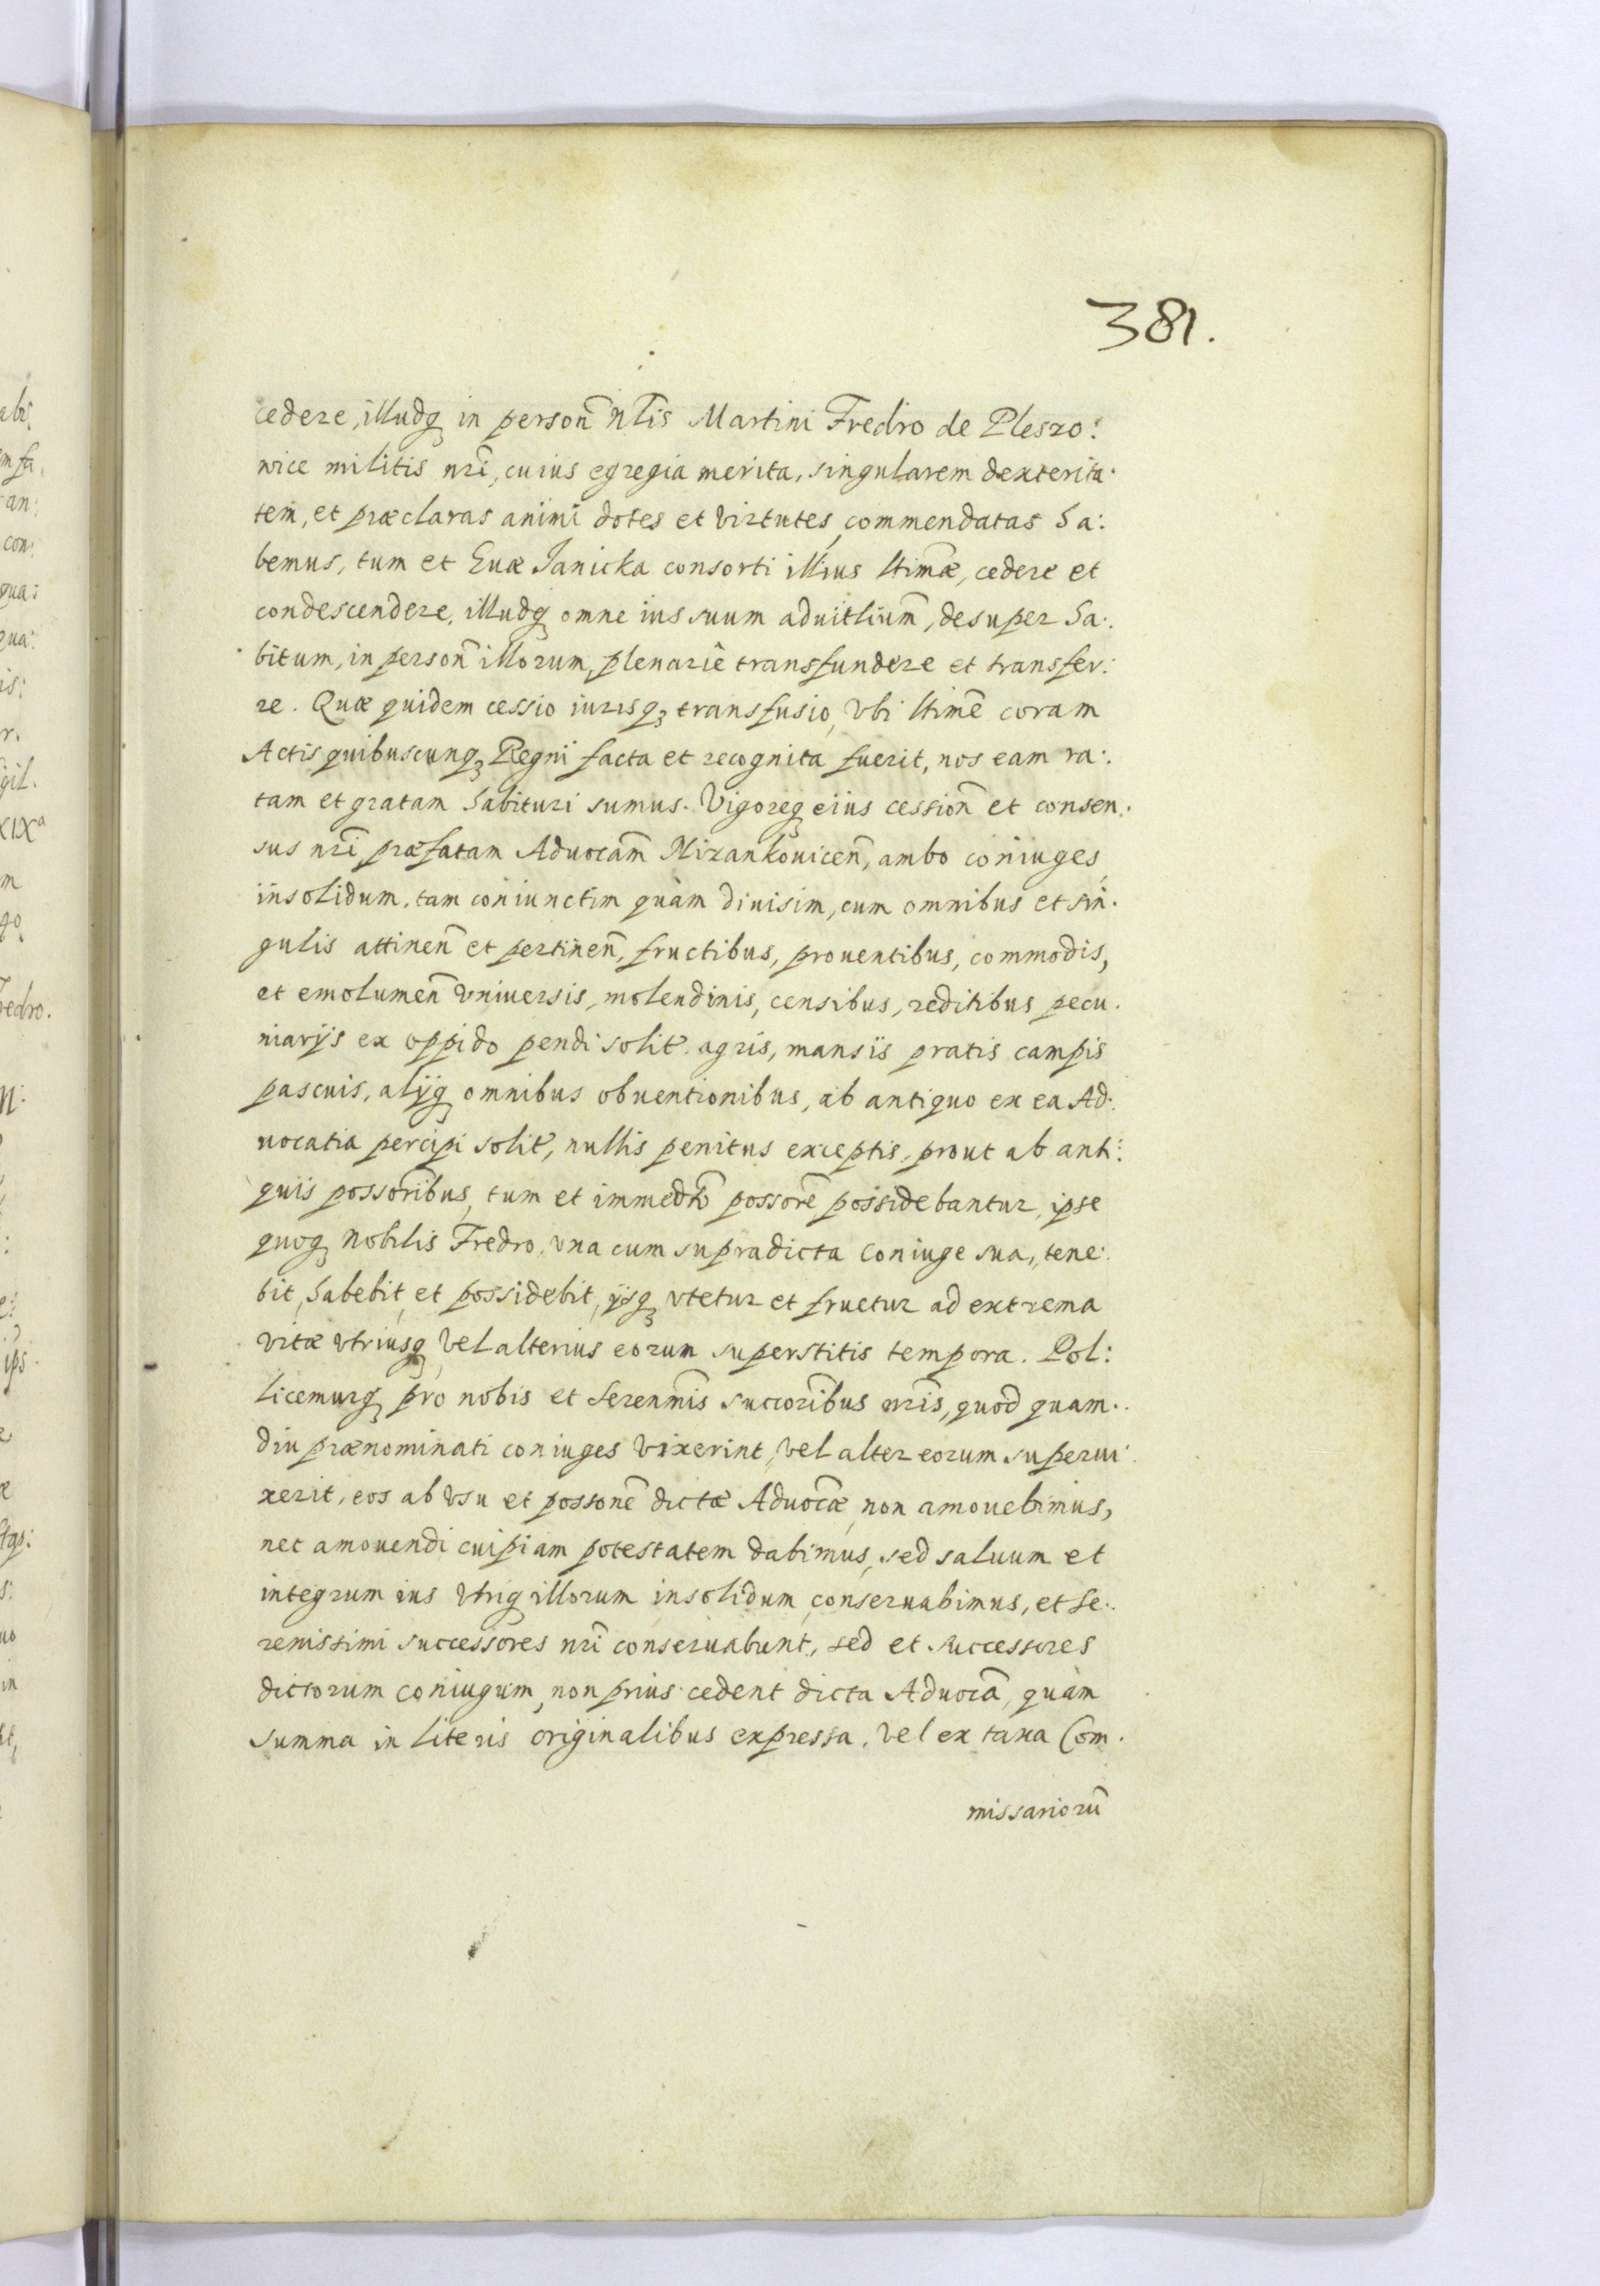 381.
cedere, illudq₃ in person̄ Nłis Martini Fredro de Pleszo:
wice militis nr̄i, cuius egregia merita, singularem dexterita:
tem, et præclaras animi dotes et virtutes, commendatas ha:
bemus, tum et Euæ Janicka consorti illius ltimǣ, cedere et
condescendere, illudq₃ omne ius suum aduitlium̄, desuper ha:
bitum, in person̄ illorum, plenariè transfundere et transfer:
re. Quæ quidem cessio iurisq₃ transfusio, vbi ltimē coram
Actis quibuscunq₃ Regni facta et recognita fuerit, nos eam ra:
tam et gratam habituri sumus. Vigoreq₃ eius cession̄ et consen:
sus nr̄i præfatam Aduocām Nizankouicen̄, ambo coniuges,
insolidum, tam coniunctim quàm diuisim, cum omnibus et sin:
gulis attinen̄ et pertinen̄, fructibus, prouentibus, commodis,
et emolumen̄ vniuersis, molendinis, censibus, reditibus pecu:
niarijs ex oppido pendi solit̄ agris, mansis pratis campis
pascuis, alijq₃ omnibus obuentionibus, ab antiquo ex ea Ad:
uocatia percipi solit̄, nullis penitus exceptis, prout ab anti:
quis possor̄ibus, tum et immedtō possorē possidebantur, ipse
quoq₃ Nobilis Fredro, vna cum supradicta coniuge sua, tene:
bit, habebit, et possidebit, ijsq₃ vtetur et fruetur ad extrema
vitæ vtriusq₃, vel alterius eorum superstitis tempora. Pol:
licemurq₃ pro nobis et Serenmīs succor̄ibus nr̄is, quod quam:
diu prænominati coniuges vixerint, vel alter eorum superui:
xerit, eos ab vsu et possonē dictæ Aduocǣ, non amouebimus,
nec amouendi cuipiam potestatem dabimus, sed saluum et
integrum ius vtriq₃ illorum insolidum, conseruabimus, et Se:
renissimi successores nr̄i conseruabunt, sed et successores
dictorum coniugum, non prius cedent dicta Aduocā, quàm
summa in literis originalibus expressa, vel ex taxa Com:
missariorū